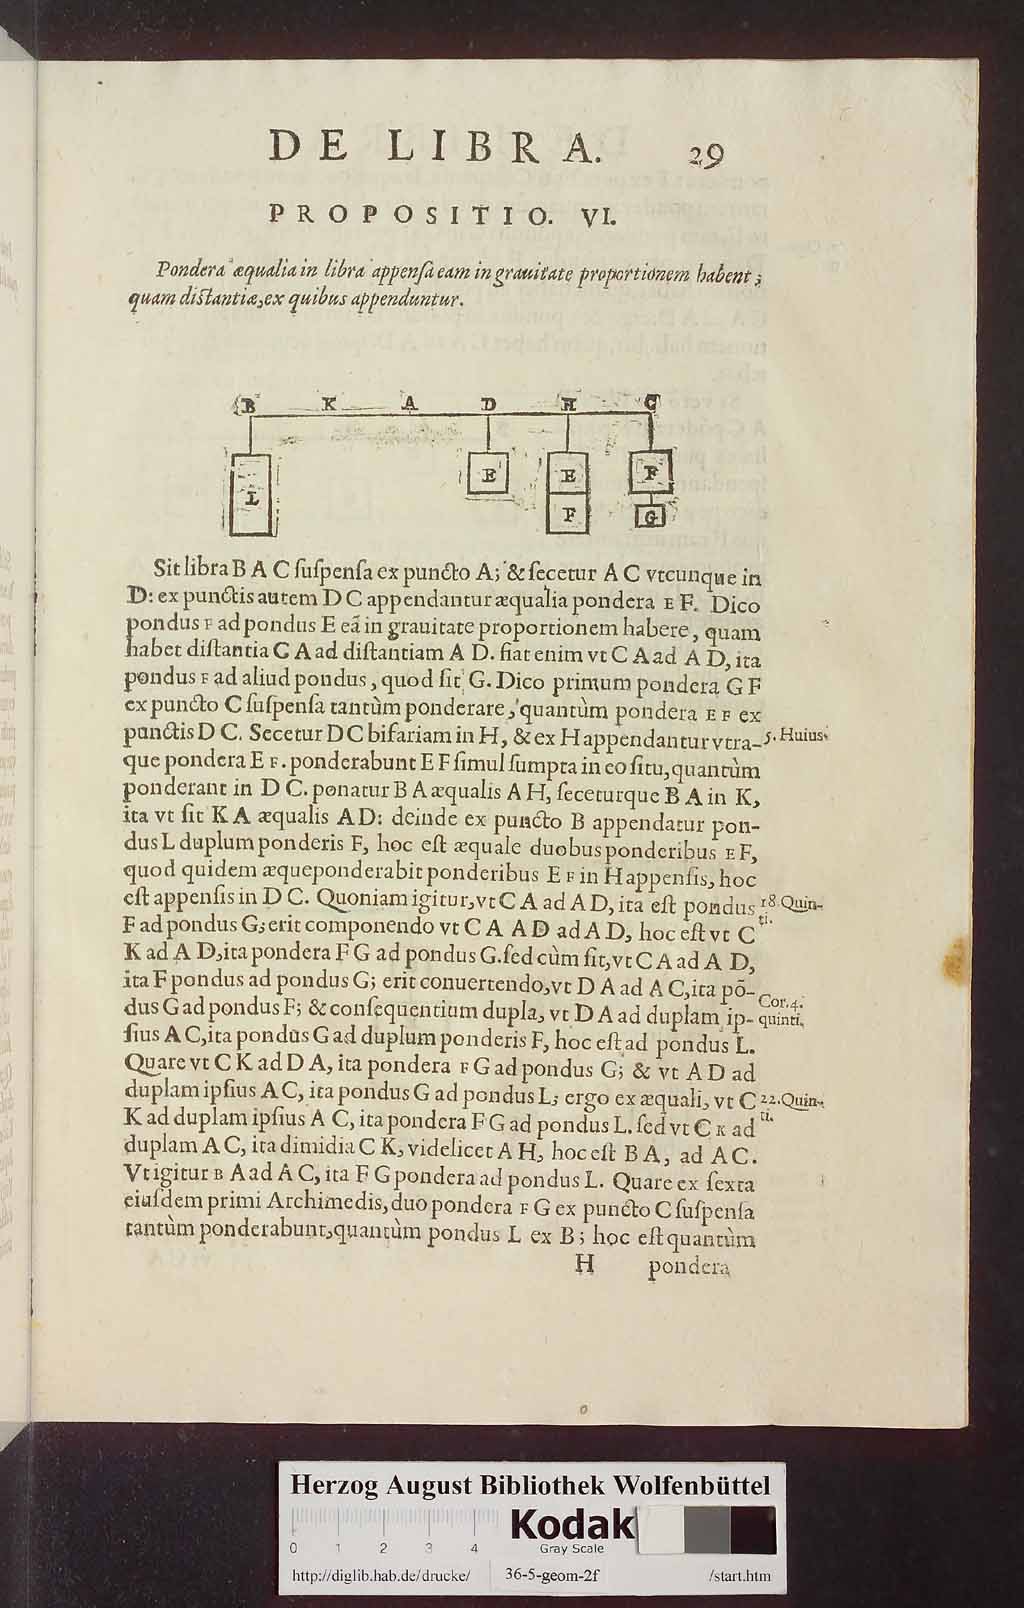 DE LIBRA. 29
PROPOSITIO. VI.
Pondera æqualia in libra appenſa eam in grauitate proportionem habent;
quam diſtantiæ, ex quibus appenduntur.
B K A D H C
L E E F
F G
Sit libra B A C ſuſpenſa ex puncto A; & ſecetur A C vtcunque in
D: ex punctis autem D C appendantur æqualia pondera E F. Dico
pondus F ad pondus E eā in grauitate proportionem habere, quam
habet diſtantia C A ad diſtantiam A D. fiat enim vt C A ad A D, ita
pondus F ad aliud pondus, quod ſit G. Dico primum pondera G F
ex puncto C ſuſpenſa tantùm ponderare, quantùm pondera E F ex
punctis D C. Secetur DC bifariam in H, & ex H appendantur vtra- 5. Huius.
que pondera E F. ponderabunt E F ſimul ſumpta in eo ſitu, quantùm
ponderant in D C. ponatur B A æqualis A H, ſeceturque B A in K,
ita vt ſit K A æqualis A D: deinde ex puncto B appendatur pon-
dus L duplum ponderis F, hoc eſt æquale duobus ponderibus E F,
quod quidem æqueponderabit ponderibus E F in H appenſis, hoc
eſt appenſis in D C. Quoniam igitur, vt C A ad A D, ita eſt pondus 18. Quin-
F ad pondus G; erit componendo vt C A A D ad A D, hoc eſt vt C ti.
K ad A D, ita pondera F G ad pondus G. ſed cùm ſit, vt C A ad A D,
ita F pondus ad pondus G; erit conuertendo, vt D A ad A C, ita pō- Cor. 4.
dus G ad pondus F; & conſequentium dupla, vt D A ad duplam ip- quinti.
ſius A C, ita pondus G ad duplum ponderis F, hoc eſt ad pondus L.
Quare vt C K ad D A, ita pondera F G ad pondus G; & vt A D ad
duplam ipſius A C, ita pondus G ad pondus L; ergo ex æquali, vt C 22. Quin-
K ad duplam ipſius A C, ita pondera F G ad pondus L. ſed vt C K ad ti.
duplam A C, ita dimidia C K, videlicet A H, hoc eſt B A, ad A C.
Vt igitur B A ad A C, ita F G pondera ad pondus L. Quare ex ſexta
eiuſdem primi Archimedis, duo pondera F G ex puncto C ſuſpenſa
tantùm ponderabunt, quantùm pondus L ex B; hoc eſt quantùm
H pondera
Herzog August Bibliothek Wolfenbüttel
Kodak
0 1 2 3 4 Gray Scale
http://diglib.hab.de/drucke/ 36-5-geom-2f /start.htm